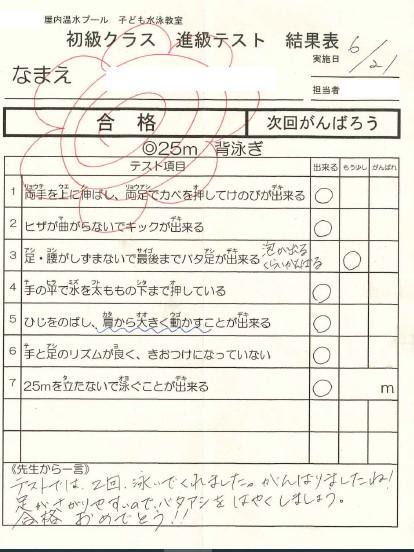 屋内温水プール 子ども水泳教室
初級クラス 進級テスト 結果表
実施日 6/21
なまえ
担当者
合格 次回がんばろう
◎25m 背泳ぎ
テスト項目 出来る もう少し がんばれ
1 両手を上に伸ばし、両足でカベを押してけのびが出来る ○
2 ヒザが曲がらないでキックが出来る ○
3 足・腰がしずまないで最後までバタ足が出来る 泡が出るくらいがんばる ○
4 手の平で水を太ももの下まで押している ○
5 ひじをのばし、肩から大きく動かすことが出来る ○
6 手と足のリズムが良く、きおつけになっていない ○
7 25mを立たないで泳ぐことが出来る ○ m
《先生から一言》
テストでは、2回、泳いでくれました。がんばりましたね!
足がさがりやすいので、バタアシをはやくしましょう。
合格 おめでとう!!